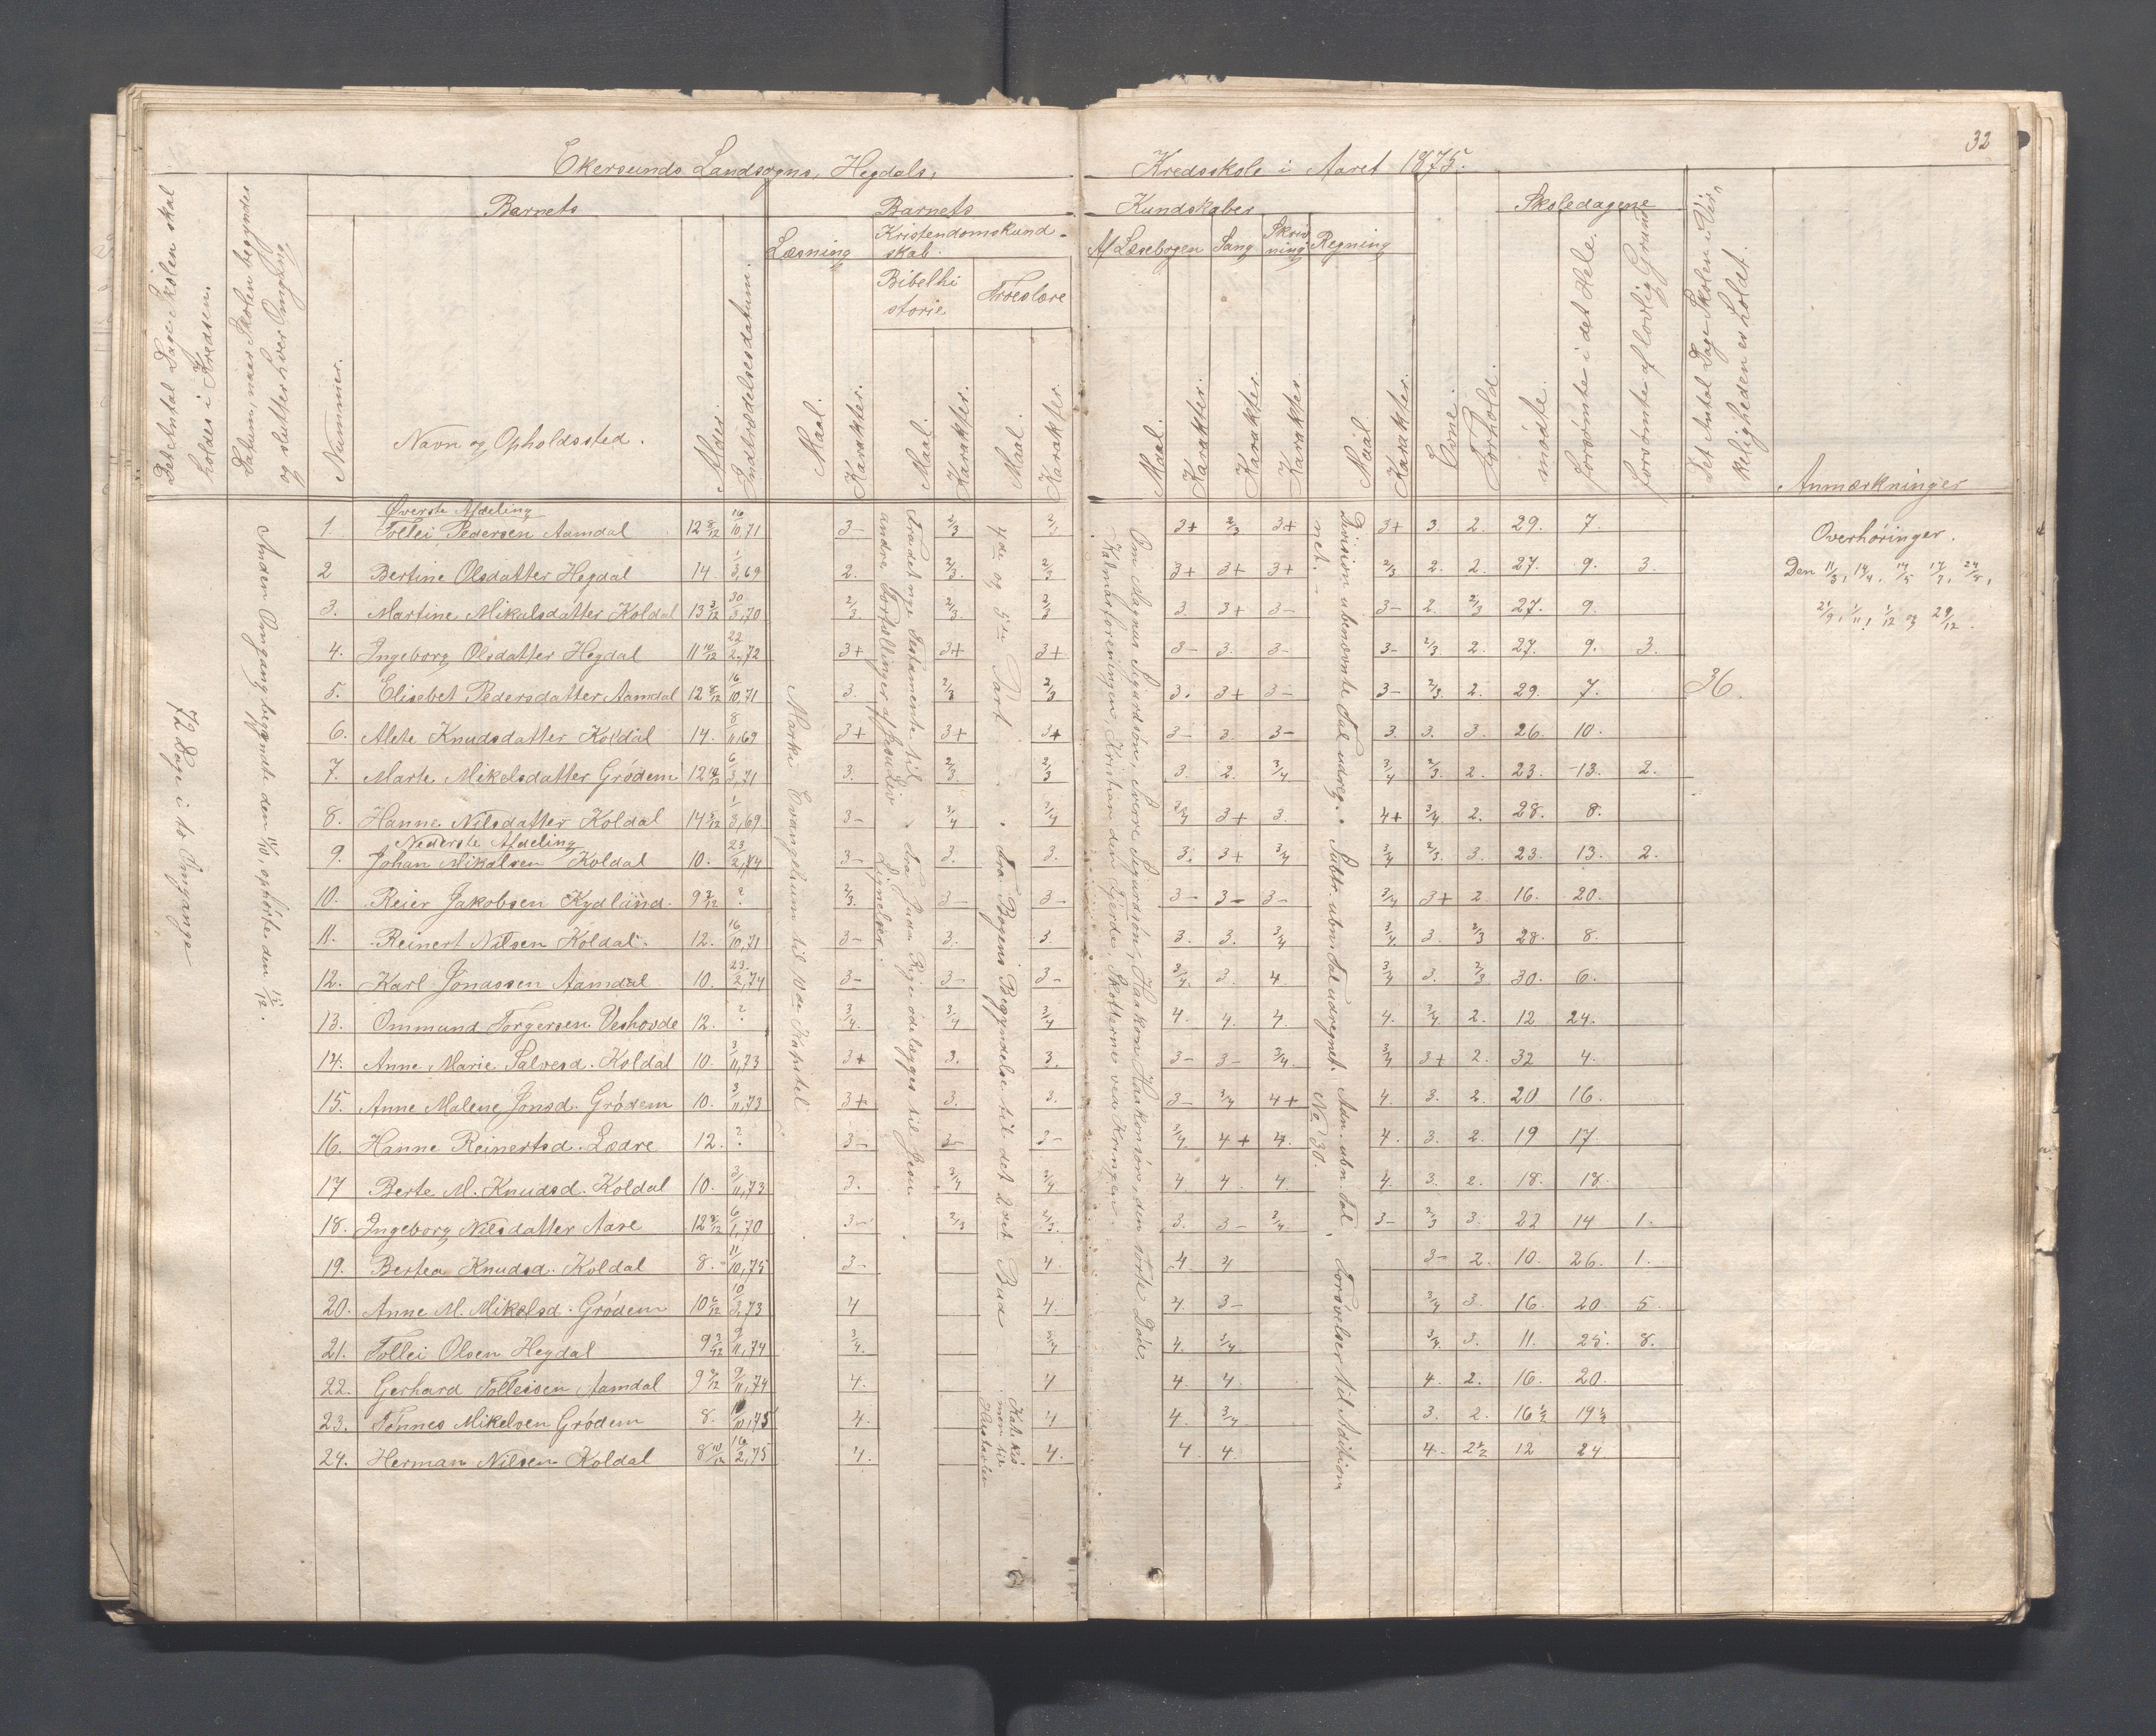 32
Ekersunds Landsogns, Hegdals, Kredsskole i Aaret 1875.
Det Antal Dage Skolen skal holdes i Kredsen.
Datum, naar Skolen begynder og slutter hver Omgang
Barnets
Nummer.
Navn og Opholdssted.
Alder.
Indtrædelsesdatum.
Barnets Kundskaber
Læsning
Maal.
Karakter.
Kristendomskundskab.
Bibelhistorie
Maal.
Karakter.
Troeslære
Maal.
Karakter.
Af Læsebogen
Maal.
Karakter.
Sang
Karakter.
Skrivning
Karakter.
Regning
Maal.
Karakter.
Evne.
Forhold.
Skoledagene
mødte.
forsømte i det Hele.
forsømte af lovlig Grund
Det Antal Dage Skolen i Virkeligheden er holdt.
Anmærkninger
72 Dage i to Omgange
Anden Omgang begyndte den
Marki Evangelium til 10de Kapitel
Fra det nye Testamente til andre Fortællinger af Jesu Liv. Fra Juda Rige ødelægges til Jesu.
Lignelser.
4de og 5te Part. Fra Bogens Begyndelse til det 2det Bud
Om Magnus Sigurdsøn, Sverre Sigurdsøn, Haakon Haakonsøn, den sorte Død,
Kalmarforeningen, Kristian den Fjerde, Skotterne ved Kringen.
No. 30.
Øverste Afdeling
1. Tollei Pedersen Aamdal 12 8/12 16/10,71 3- 2/3 3+ 2/3 3+ 3+ 3. 2. 29. 7.
2 Bertine Olsdatter Hegdal 14. 1/3,69 2. 2/3. 2/3 3+ 3+ 3+ 2/3 2. 2. 27. 9. 3.
3. Martine Mikalsdatter Koldal 13 3/12 30/3,70 2/3. 2/3. 2/3 3. 3+ 3- 3- 2. 2/3 27. 9.
4. Ingeborg Olsdatter Hegdal 11 10/12 22/2,72 3+ 3+ 3+ 3- 3. 3- 3- 2/3. 2. 27. 9. 3.
5. Elisebet Pedersdatter Aamdal 12 8/12 16/10,71 3. 2/3 2/3 3. 3+ 3- 3- 2/3. 2. 29. 7. 36.
6. Alete Knudsdatter Koldal 14. 8/11,69 3+ 3+ 3+ 3- 3. 3- 3. 3. 3. 26. 10.
7. Marte Mikelsdatter Grødem 12 10/12 6/3,71 3. 2/3 2/3 3. 2. 3/4 3/4 2/3. 2. 23. 13. 2.
8. Hanne Nilsdatter Koldal 14 5/12 1/3,69. 3- 3/4 3/4 3/4 3+ 3. 4+ 3/4 2. 28. 8.
Nederste Afdeling
9. Johan Mikalsen Koldal 10. 23/2,74 3- 3. 3. 3. 3+ 3/4 3/4 2/3. 3. 23. 13. 2.
10. Reier Jakobsen Kydland. 9 3/12 ? 2/3. 3- 3- 3- 3- 3- 3/4 3+ 2. 16. 20.
11. Reinert Nilsen Koldal. 12. 16/10,71 3- 3. 3. 3. 3. 3/4 3/4. 3. 2/3 28. 8.
12. Karl Jonassen Aamdal 10. 23/2,74 3- 3- 3- 3/4. 3. 4 3/4 3. 2/3. 30. 6.
13. Ommund Torgersen Veshovde 12. ? 3/4. 3/4 3/4 4. 4. 4. 4. 3/4 2. 12 24.
14. Anne Marie Salvesd. Koldal 10. 3/11,73 3+ 3. 3. 3- 3- 3/4. 3/4 3+ 2. 32 4.
15. Anne Malene Jonsd. Grødem 10. 3/11,73 3+ 3. 3. 3- 3/4 4+ 4. 3. 2. 20 16.
16. Hanne Reinertsd. Lædre 12. ? 3- 3- 3- 3/4. 4+ 4. 4. 3. 2. 19 17.
17 Berte M. Knudsd. Koldal 10. 3/11,73 3. 3/4 3/4 4. 4. 4. 4. 3. 2. 18. 18.
18. Ingeborg Nilsdatter Aase 12 9/12 6/1,70 3- 2/3 2/3. 3. 3- 3/4. 3- 2/3 3. 22 14 1.
19. Bertea Knudsd. Koldal 8. 11/10,75 3- 4. 4 4 3- 2. 10. 26. 1.
20. Anne M. Mikelsd. Grødem 10 6/12 10/3,73 4 4. 4. 3- 3/4 3. 16. 20 5.
21. Tollei Olsen Hegdal 9 3/12 9/11,74 3/4. 3/4 4. 3/4. 3/4 3. 11. 25. 8.
22. Gerhard Tolleisen Aamdal 9 9/12 9/11,74 4. 4 4. 4. 4. 2. 16. 20.
23. Tønnes Mikelsen Grødem 8. 11/10,75 4. 4 4. 3/4 3. 2. 16 1/2 19 1/2
24. Herman Nilsen Koldal 8 10/12 16/2,75 4. 4. 4 4. 4. 2 1/2 12 24
Overhøringer.